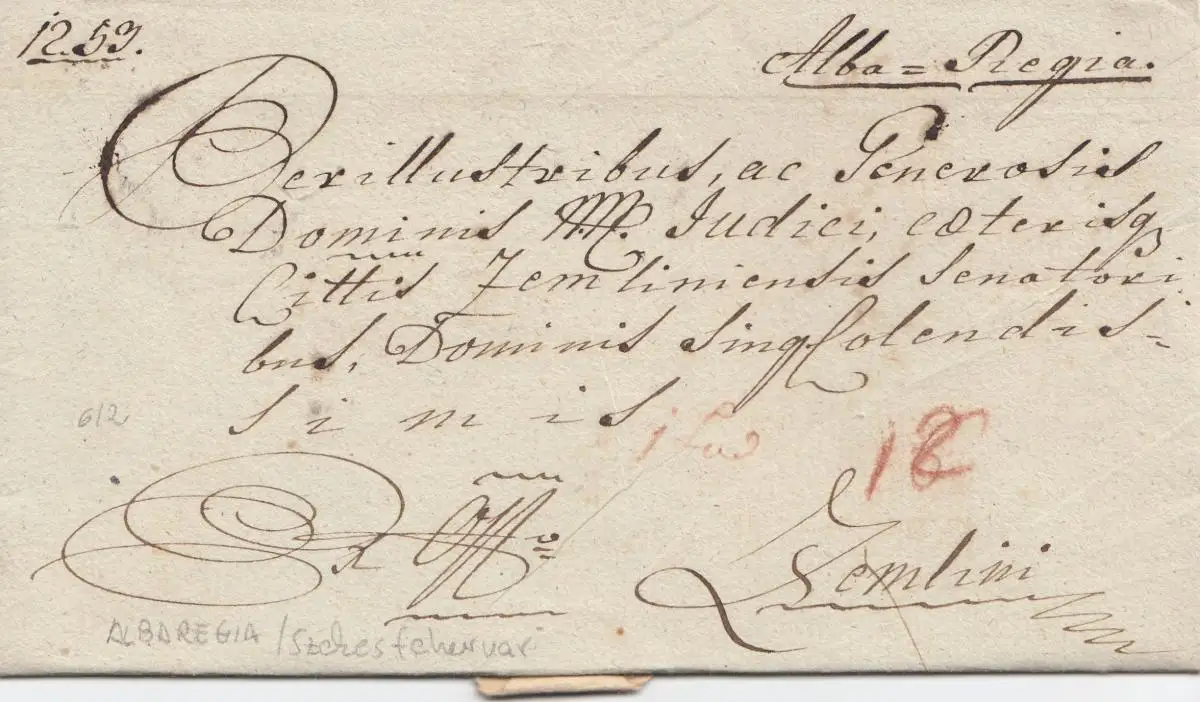 12.53.
Alba=Regia.
Perillustribus, ac Generosis
Dominis NN. Judici, cæterisq
Cittis Zemliniensis Senatori
bus, Dominis Sing Colendis=
simis
612
18
Ex Offo
Zemlini
ALBAREGIA / Szekesfehervar